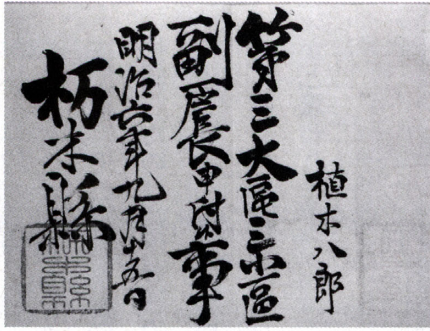 植木八郎
第三大區二小區
副戸長申付候事
明治六年九月五日
杤木縣